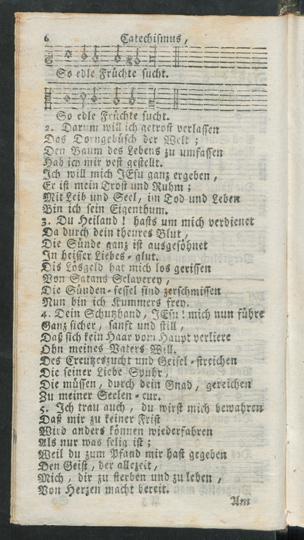 6 Catechismus,
So edle Früchte sucht.
So edle Früchte sucht.
2. Darum will ich getrost verlassen
Das Dorngebüsch der Welt;
Den Baum des Lebens zu umfassen
Hab ich mir vest gestellt.
Ich will mich JEsu ganz ergeben,
Er ist mein Trost und Ruhm;
Mit Leib und Seel, im Tod und Leben
Bin ich sein Eigenthum.
3. Du Heiland! hasts um mich verdienet
Da durch dein theures Blut,
Die Sünde ganz ist ausgesöhnet
In heisser Liebes-glut.
Dis Lösgeld hat mich los gerissen
Von Satans Sclaverey,
Die Sünden-fessel sind zerschmissen
Nun bin ich Kummers frey.
4. Dein Schutzhand, JEsu! mich nun führe
Ganz sicher, sanft und still,
Daß sich kein Haar vom Haupt verliere
Ohn meines Vaters Will.
Des Creutzeszucht und Geisel-streichen
Die seiner Liebe Spuhr,
Die müssen, durch dein Gnad, gereichen
Zu meiner Seelen-cur.
5. Ich trau auch, du wirst mich bewahren
Daß mir zu keiner Frist
Wird anders können wiederfahren
Als nur was selig ist;
Weil du zum Pfand mir hast gegeben
Den Geist, der allezeit,
Mich, dir zu sterben und zu leben,
Von Herzen macht bereit.
Am